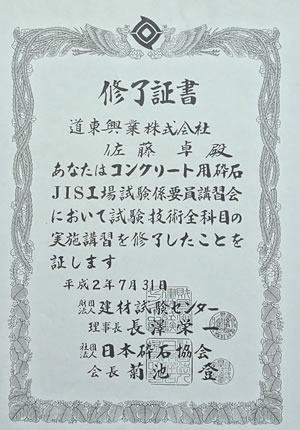 修了証書
道東興業株式会社
佐藤卓殿
あなたはコンクリート用砕石
JIS工場試験係要員講習会
において試験技術全科目の
実施講習を修了したことを
証します
平成2年7月31日
財団法人 建材試験センター
理事長 長澤榮一
社団法人 日本砕石協会
会長 菊池登